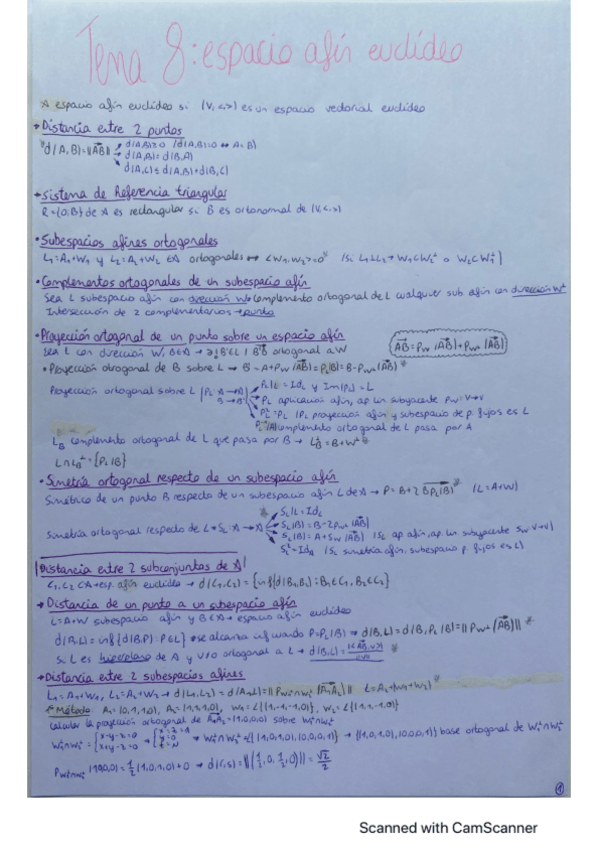 Tema 8: espacio afín euclídeo
A espacio afín euclídeo si (V,<,>) es un espacio vectorial euclídeo
• Distancia entre 2 puntos
d(A,B)=||AB||
d(A,B)≥0 (d(A,B)=0 ↔ A=B)
d(A,B)=d(B,A)
d(A,C)≤d(A,B)+d(B,C)
• Sistema de Referencia triangular
R=(O,B) de A es rectangular si B es ortonormal de (V,<,>)
• Subespacios afines ortogonales
L₁=A₁+W₁ y L₂=A₂+W₂ ortogonales ↔ <W₁,W₂>=0
• Complementos ortogonales de un subespacio afín
Sea L subespacio afín con dirección W → complemento ortogonal de L cualquier sub afín con dirección W⊥
Intersección de 2 complementarios → punto
• Proyección ortogonal de un punto sobre un espacio afín
AB=Pw(AB)+Pw⊥(AB)
Sea L con dirección W, B∈A → ∃! B'∈L | BB' ortogonal a W
• Proyección otrogonal de B sobre L → B'=A+Pw(AB)=PL(B)=B-Pw⊥(AB)
Proyección ortogonal sobre L (PL: A→A)
PL|L=IdL y Im(PL)=L
PL aplicación afín, ap lin subyacente Pw=V→V
PL²=PL (PL proyección afín y subespacio de p. fijos es L)
complemento ortogonal de L pasa por A
complemento ortogonal de L que pasa por B → LB⊥=B+W⊥
L∩LB⊥={PL(B)}
• Simetría ortogonal respecto de un subespacio afín
Simétrico de un punto B respecto de un subespacio afín L de A → P=B+2BPL(B) (L=A+W)
Simetría ortogonal respecto de L → SL: A→A
SL|L=IdL
SL(B)=B-2Pw⊥(AB)
SL(B)=A+Sw(AB) (SL ap afín, ap. lin subyacente Sw: V→V)
SL²=IdA (SL simetría afín, subespacio p. fijos es L)
Distancia entre 2 subconjuntos de A
C₁,C₂⊂A esp. afín euclídeo → d(C₁,C₂)=inf{d(B₁,B₂): B₁∈C₁, B₂∈C₂}
• Distancia de un punto a un subespacio afín
L=A+W subespacio afín y B∈A → espacio afín euclídeo
d(B,L)=inf{d(B,P): P∈L} → se alcanza inf cuando P=PL(B) → d(B,L)=d(B,PL(B))=||Pw⊥(AB)||
Si L es hiperplano de A y v≠0 ortogonal a L →
• Distancia entre 2 subespacios afines
L₁=A₁+W₁, L₂=A₂+W₂ → d(L₁,L₂)=d(A₂,L)=||Pw₁⊥∩w₂⊥(A₁A₂)|| L=A₁+(W₁+W₂)
1º Método: A₁=(0,1,1,0), A₂=(1,1,1,0), W₁=L{(1,-1,-1,0)}, W₂=L{(1,1,-1,0)}
calcular la proyección ortogonal de A₁A₂=(1,0,0,0) sobre W₁⊥∩W₂⊥
W₁⊥∩W₂⊥={x-y-z=0 x+y-z=0 → → W₁⊥∩W₂⊥=L{(1,0,1,0),(0,0,0,1)} → {(1,0,1,0),(0,0,0,1)} base ortogonal de W₁⊥∩W₂⊥
Pw₁⊥∩w₂⊥(1,0,0,0)=½(1,0,1,0)+0 → d(r,s)=||(½,0,½,0)||=√2/2
1
Scanned with CamScanner